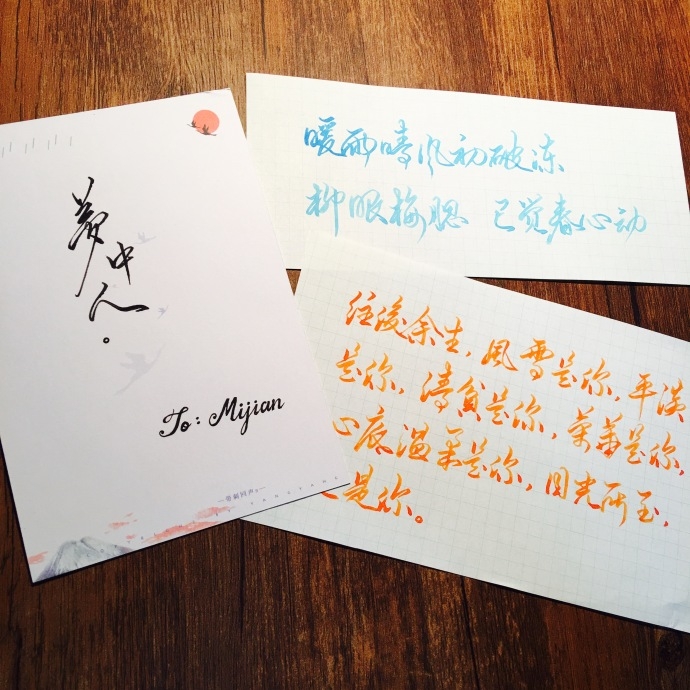 夢中人。
To: Mijian
暖雨晴风初破冻
柳眼梅腮 已觉春心动
往後余生，風雪是你，平淡
是你，清貧是你，荣华是你，
心底温柔是你，目光所至，
是你。